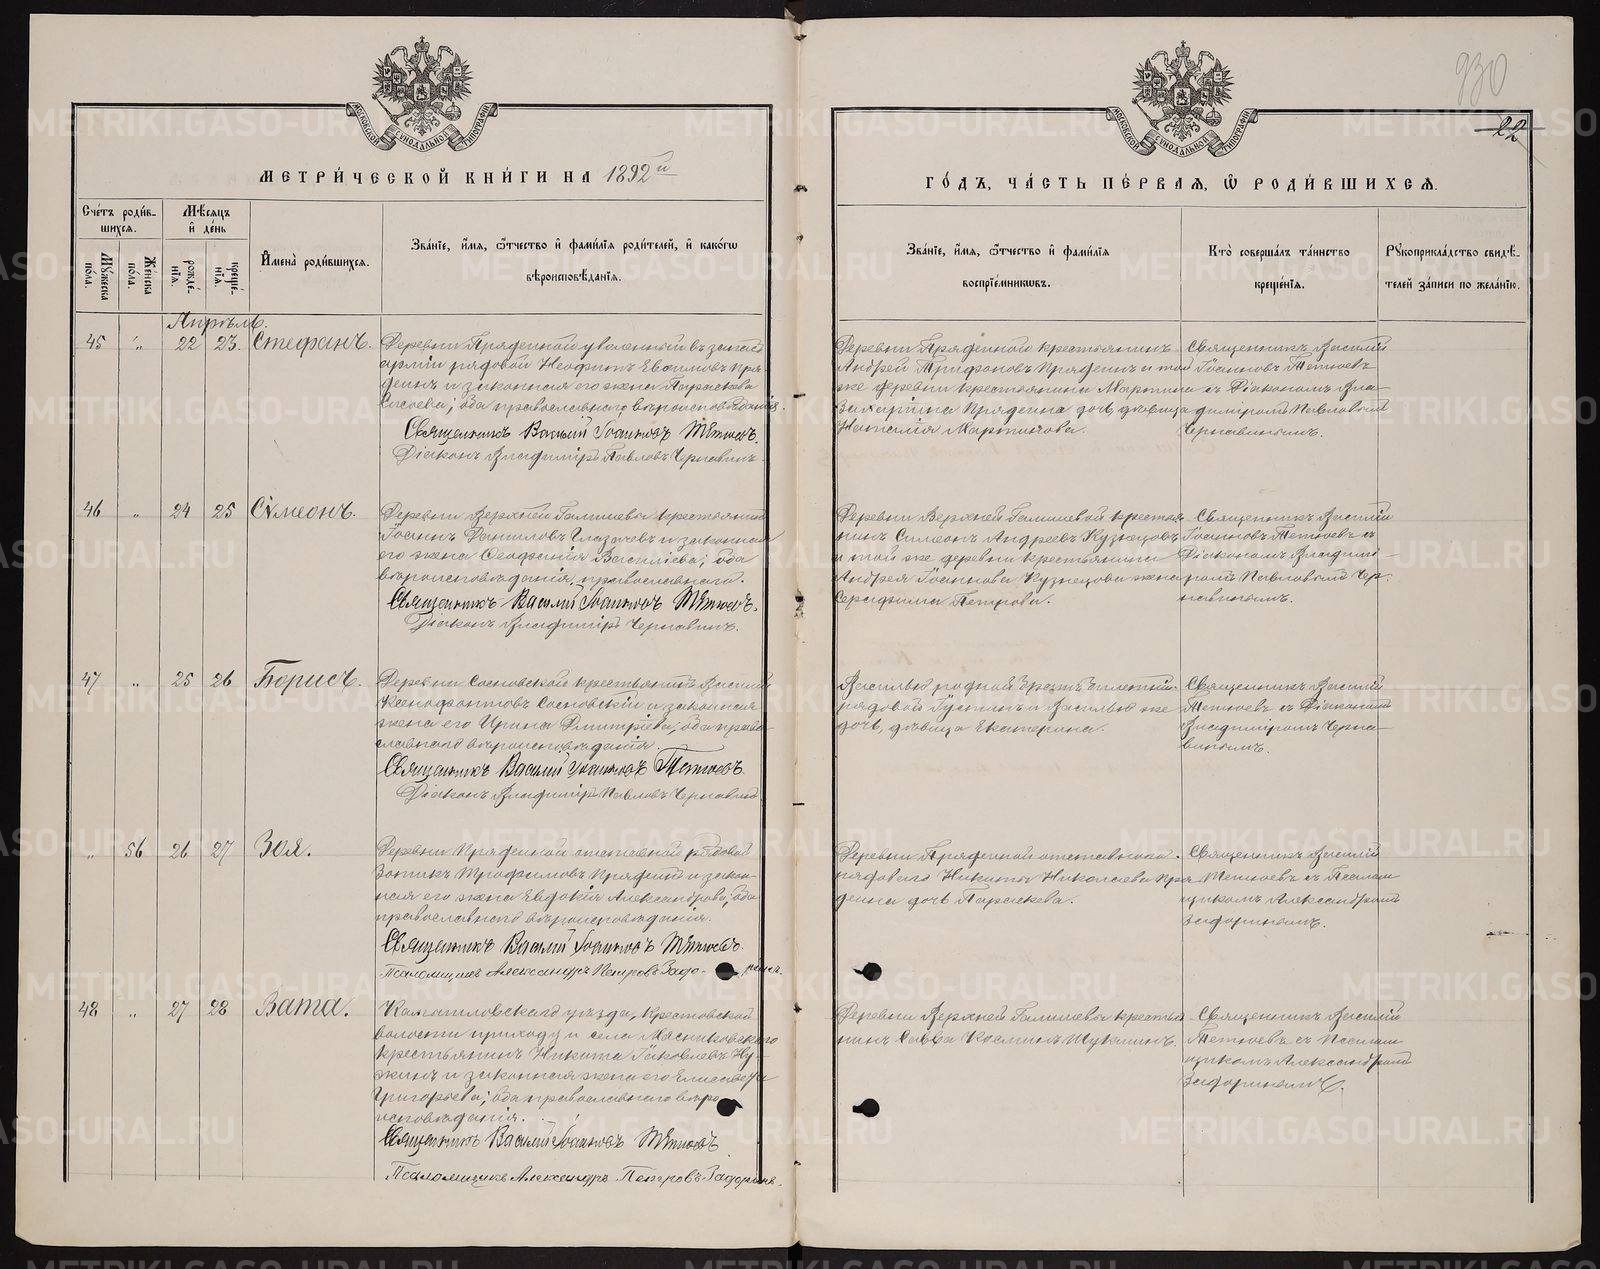 930
22
МОСКОВСКОЙ СѴНОДАЛЬНОЙ ТИПОГРАФІИ
МОСКОВСКОЙ СѴНОДАЛЬНОЙ ТИПОГРАФІИ
МЕТРИ́ЧЕСКОЙ КНИ́ГИ НА 1892й
ГО́ДЪ, ЧА́СТЬ ПЕ́РВАЯ, Ѡ РОДИ́ВШИХСЯ.
Сче́тъ роди́в-
шихся.
Мѣ́сяцъ
и҆ де́нь
Мꙋ́жеска
по́ла.
Же́нска
по́ла.
рожде́-
нїѧ.
креще́-
нїѧ.
И҆мена̀ роди́вшихся.
Зва́нїе, и҆́мѧ, ѻ҆́тчество и҆ фами́лїѧ роди́телей, и҆ како́гѡ
вѣроисповѣ́данїѧ.
Зва́нїе, и҆́мѧ, ѻ҆́тчество и҆ фами́лїѧ
воспрїе́мникѡвъ.
Кто̀ соверша́лъ та́инство
креще́нїѧ.
Рꙋкоприкла́дство свидѣ́-
телей за́писи по жела́нїю.
Апрѣль.
45 „ 22 23. Стефанъ.
Деревни Пряденной уволенный въ запасъ
арміи рядовой Неофитъ Евфимовъ Пря-
деинъ и законная его жена Параскева
Сысоева; оба православнаго вѣроисповѣданія.
Священникъ Василій Іоанновъ Тетюевъ.
Діаконъ Владиміръ Павловъ Чернавинъ
Деревни Пряденной крестьянинъ
Андрей Трифоновъ Прядеинъ и той
же деревни крестьянина Мартина
Прядеина дочь дѣвица
Наталія Мартинова.
Священникъ Василій
Іоанновъ Тетюевъ
съ Діакономъ Вла-
диміромъ Павловымъ
Чернавинымъ.
46 „ 24 25 Сѵмеонъ.
Деревни Верхней Галишевой крестьянинъ
Іоаннъ Даниловъ Глазачевъ и законная
его жена Васильева; оба
вѣроисповѣданія, православнаго.
Священникъ Василій Іоанновъ Тетюевъ.
Діаконъ Владиміръ Чернавинъ.
Деревни Верхней Галишевой крестья-
нинъ Симеонъ Андреевъ Кузнецовъ
и той же деревни крестьянина
Андрея Іоаннова Кузнецова жена
Серафима Петрова.
Священникъ Василій
Іоанновъ Тетюевъ съ
Діакономъ Влади-
міромъ Павловымъ Чер-
навинымъ.
47 „ 25 26 Борисъ.
Деревни Сосновской крестьянинъ Василій
Ксенофонтовъ Сосновскій и законная
жена его Ирина Димитріева; оба право-
славнаго вѣроисповѣданія.
Священникъ Василій Іоанновъ Тетюевъ.
Діаконъ Владиміръ Павловъ Чернавинъ
Василью родной братъ
рядовой Іустинъ и Василью же
дочь, дѣвица Екатерина.
Священникъ Василій
Тетюевъ съ Діакономъ
Владиміромъ Черна-
винымъ.
„ 56 26 27 Зоя.
Деревни Пряденной отставной рядовой
Зотикъ Трофимовъ Прядеинъ и закон-
ная его жена Евдокія Александрова; оба
православнаго вѣроисповѣданія.
Священникъ Василій Іоанновъ Тетюевъ.
Псаломщикъ Александръ Петровъ Задоринъ.
Деревни Пряденной отставного
рядового Никиты Николаева Пря-
деина дочь Параскева.
Священникъ Василій
Тетюевъ съ Псалом-
щикомъ Александромъ
Задоринымъ.
48 „ 27 28 Вата.
Камышловскаго уѣзда, Крестовской
волости приходу и села Мясниковскаго
крестьянинъ Никита Іаковлевъ Ну-
жинъ и законная жена его Елисавета
Григорьева; оба православнаго вѣро-
исповѣданія.
Священникъ Василій Іоанновъ Тетюевъ.
Псаломщикъ Александръ Петровъ Задоринъ.
Деревни Верхней Галишевой крестья-
нинъ Савва Косминъ Шукшинъ.
Священникъ Василій
Тетюевъ съ Псалом-
щикомъ Александромъ
Задоринымъ.
METRIKI.GASO-URAL.RU